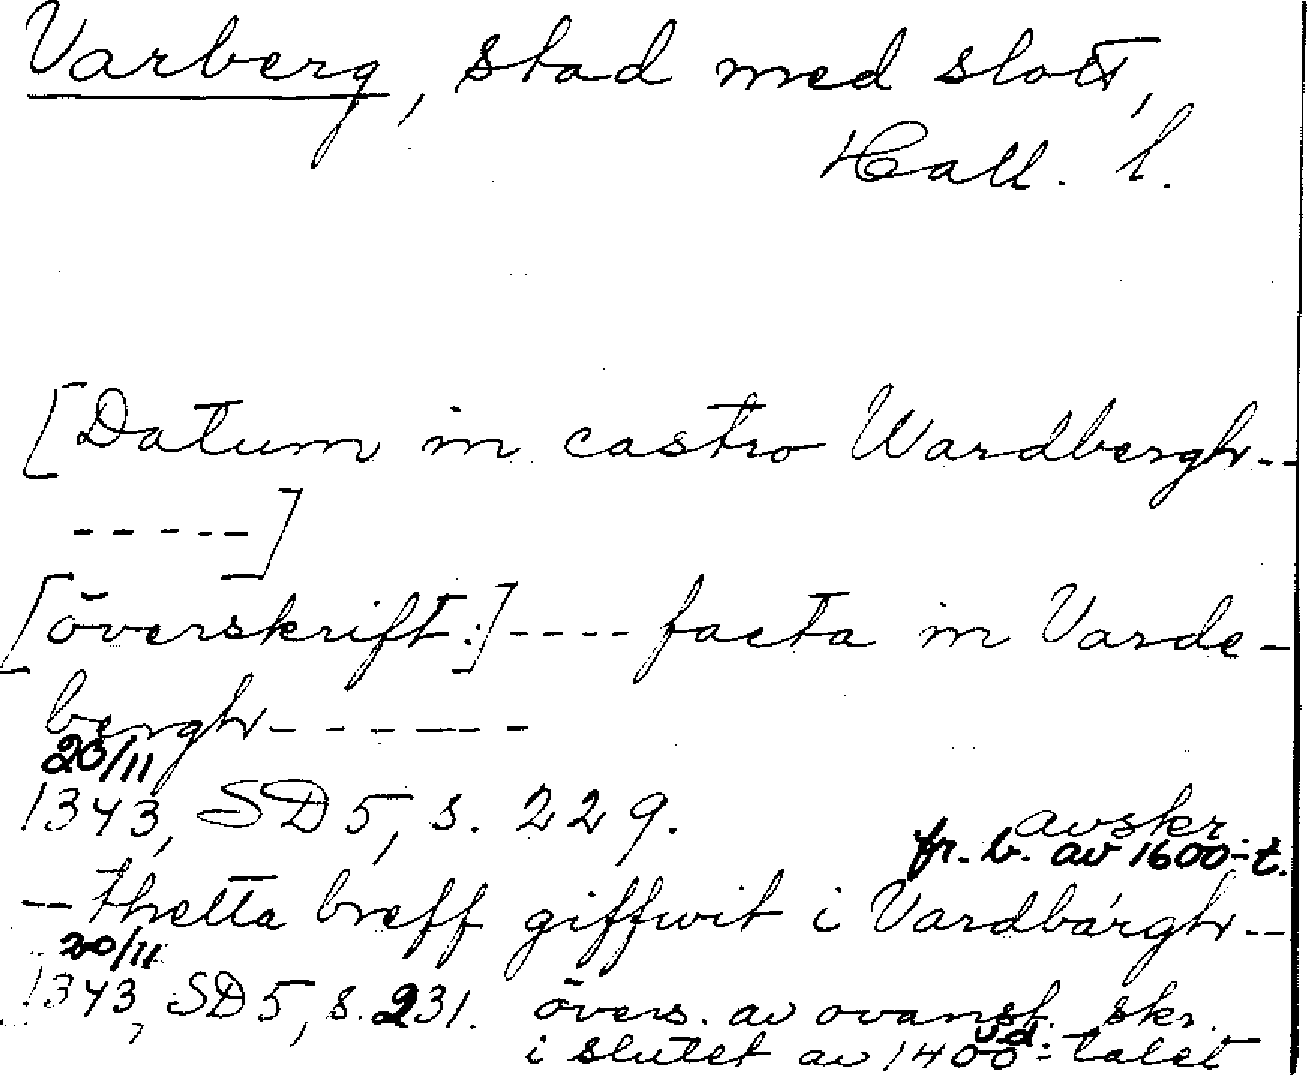 Varberg, stad med slott,
Hall. l.
[Datum in castro Wardbergh--
-----]
[överskrift:]---- facta in Varde-
bergh------
20/11
1343, SD 5, s. 229. avskr.
fr. b. av 1600-t.
-- thetta breff giffwit i Vardbärgh--
20/11
1343, SD 5, s. 231. övers. av ovanst. skr.
i slutet av 1400-talet